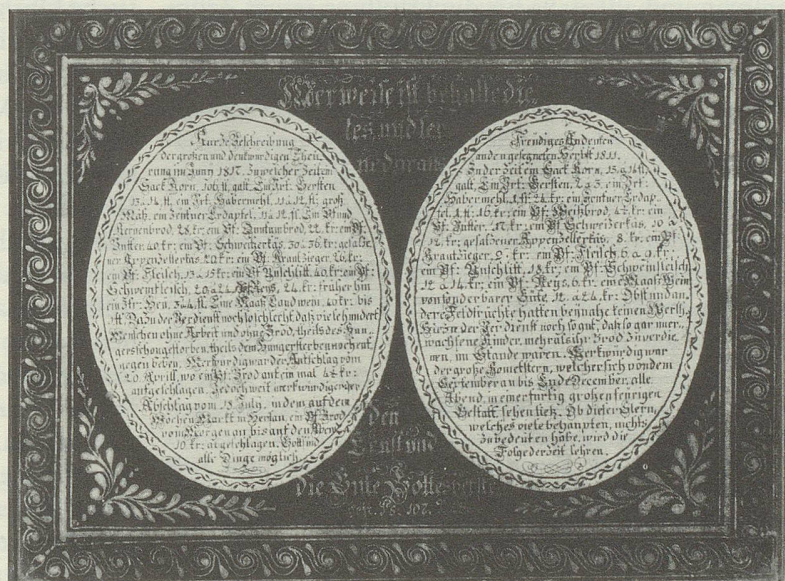 Wer weise ist behalte die
Kurze Beschreibung
der großen und denkwürdigen Theu-
rung im Jahr 1817. Zu welcher Zeit ein
Sack Korn, 106 fl. galt. Ein Zrt. Gersten
13. à 14 fl. ein Zrt. Habermehl, 11 à 12 fl. groß
Mäß, ein Zentner Erdäpfel, 11 à 12 fl. Ein Pfund
Kernenbrod, 28 kr: ein Pf: brod, 22 kr: ein Pf:
Butter, 40 kr: ein Pf: Schweitzerkäs, 30 à 36 kr: gesalze-
ner Appenzellerkäs 20 kr: ein Pf: Krautzieger 26 kr:
ein Pf: Fleisch, 13 à 15 kr: ein Pf: Unschlitt, 40 kr: ein Pf:
Schweinfleisch, 20 à 24 Pf: Reys, 24 kr: früher hin
ein Ztr: Heu, 3 à 4 fl. Eine Maaß Landwein, 40 kr: bis
1 fl. Da nun der Verdienst noch so schlecht, daß viele hundert
Menschen ohne Arbeit und ohne Brod, theils des Hun-
gers schon gestorben, theils dem Hungersterben noch ent-
gegen beben. Merkwürdig war der Aufschlag vom
20 Aprill, wo ein Pf: Brod auf ein mal 4 kr:
aufgeschlagen. Jedoch weit merkwürdiger der
Abschlag vom 18 July, indem auf dem
Wochen Markt in Herisau, ein Pf: Brod
vom Morgen an bis auf den Abend
10 kr: abgeschlagen. Gott sind
alle Dinge möglich.
Freudiges Andenken
an den gesegneten Herbst 1811.
Zu der Zeit ein Sack Korn, 13 à 14 fl.
galt. Ein Zrt. Gersten, 2 à 3. ein Zrt.
Habermehl, 1 fl. 24 kr. ein Zentner Erdäp-
fel, 1 fl: 16 kr: ein Pf: Weißbrod, 4 kr: ein
Pf: Butter, 17 kr: ein Pf: Schweizerkäs, 10 à
12 kr: gesalzener Appenzellerkäs, 8 kr: ein Pf:
Krautzieger, 9 kr: ein Pf: Fleisch, 6 à 9 kr:
ein Pf: Unschlitt, 18 kr: ein Pf: Schweinfleisch,
12 à 14 kr: ein Pf: Reys, 6 kr: eine Maaß Wein
von sonderbarer Güte, 12 à 24 kr: Obst und an-
dere Feldfrüchte hatten beynahe keinen Werth,
Hier zu der Verdienst noch so gut, daß sogar uner-
wachsene Kinder, mehr als ihr Brod zu verdie-
nen, im Stande waren. Merkwürdig war
der große Kometstern, welcher sich von dem
September an bis Ende December, alle
Abend in einer furtig großen feyrigen
Gestalt sehen ließ. Ob dieser Stern,
welches viele behaupten, nichts
zu bedeuten habe, wird die
Folge der Zeit lehren.
den
Ernst und
die Güte Gottes
107.